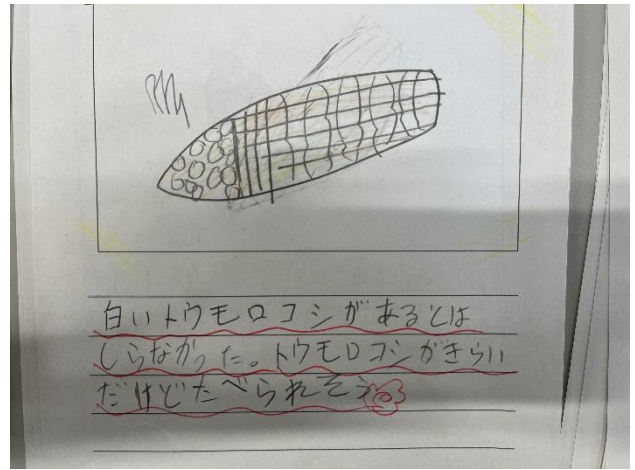 白いトウモロコシがあるとは
しらなかった。トウモロコシがきらい
だけどたべられそう